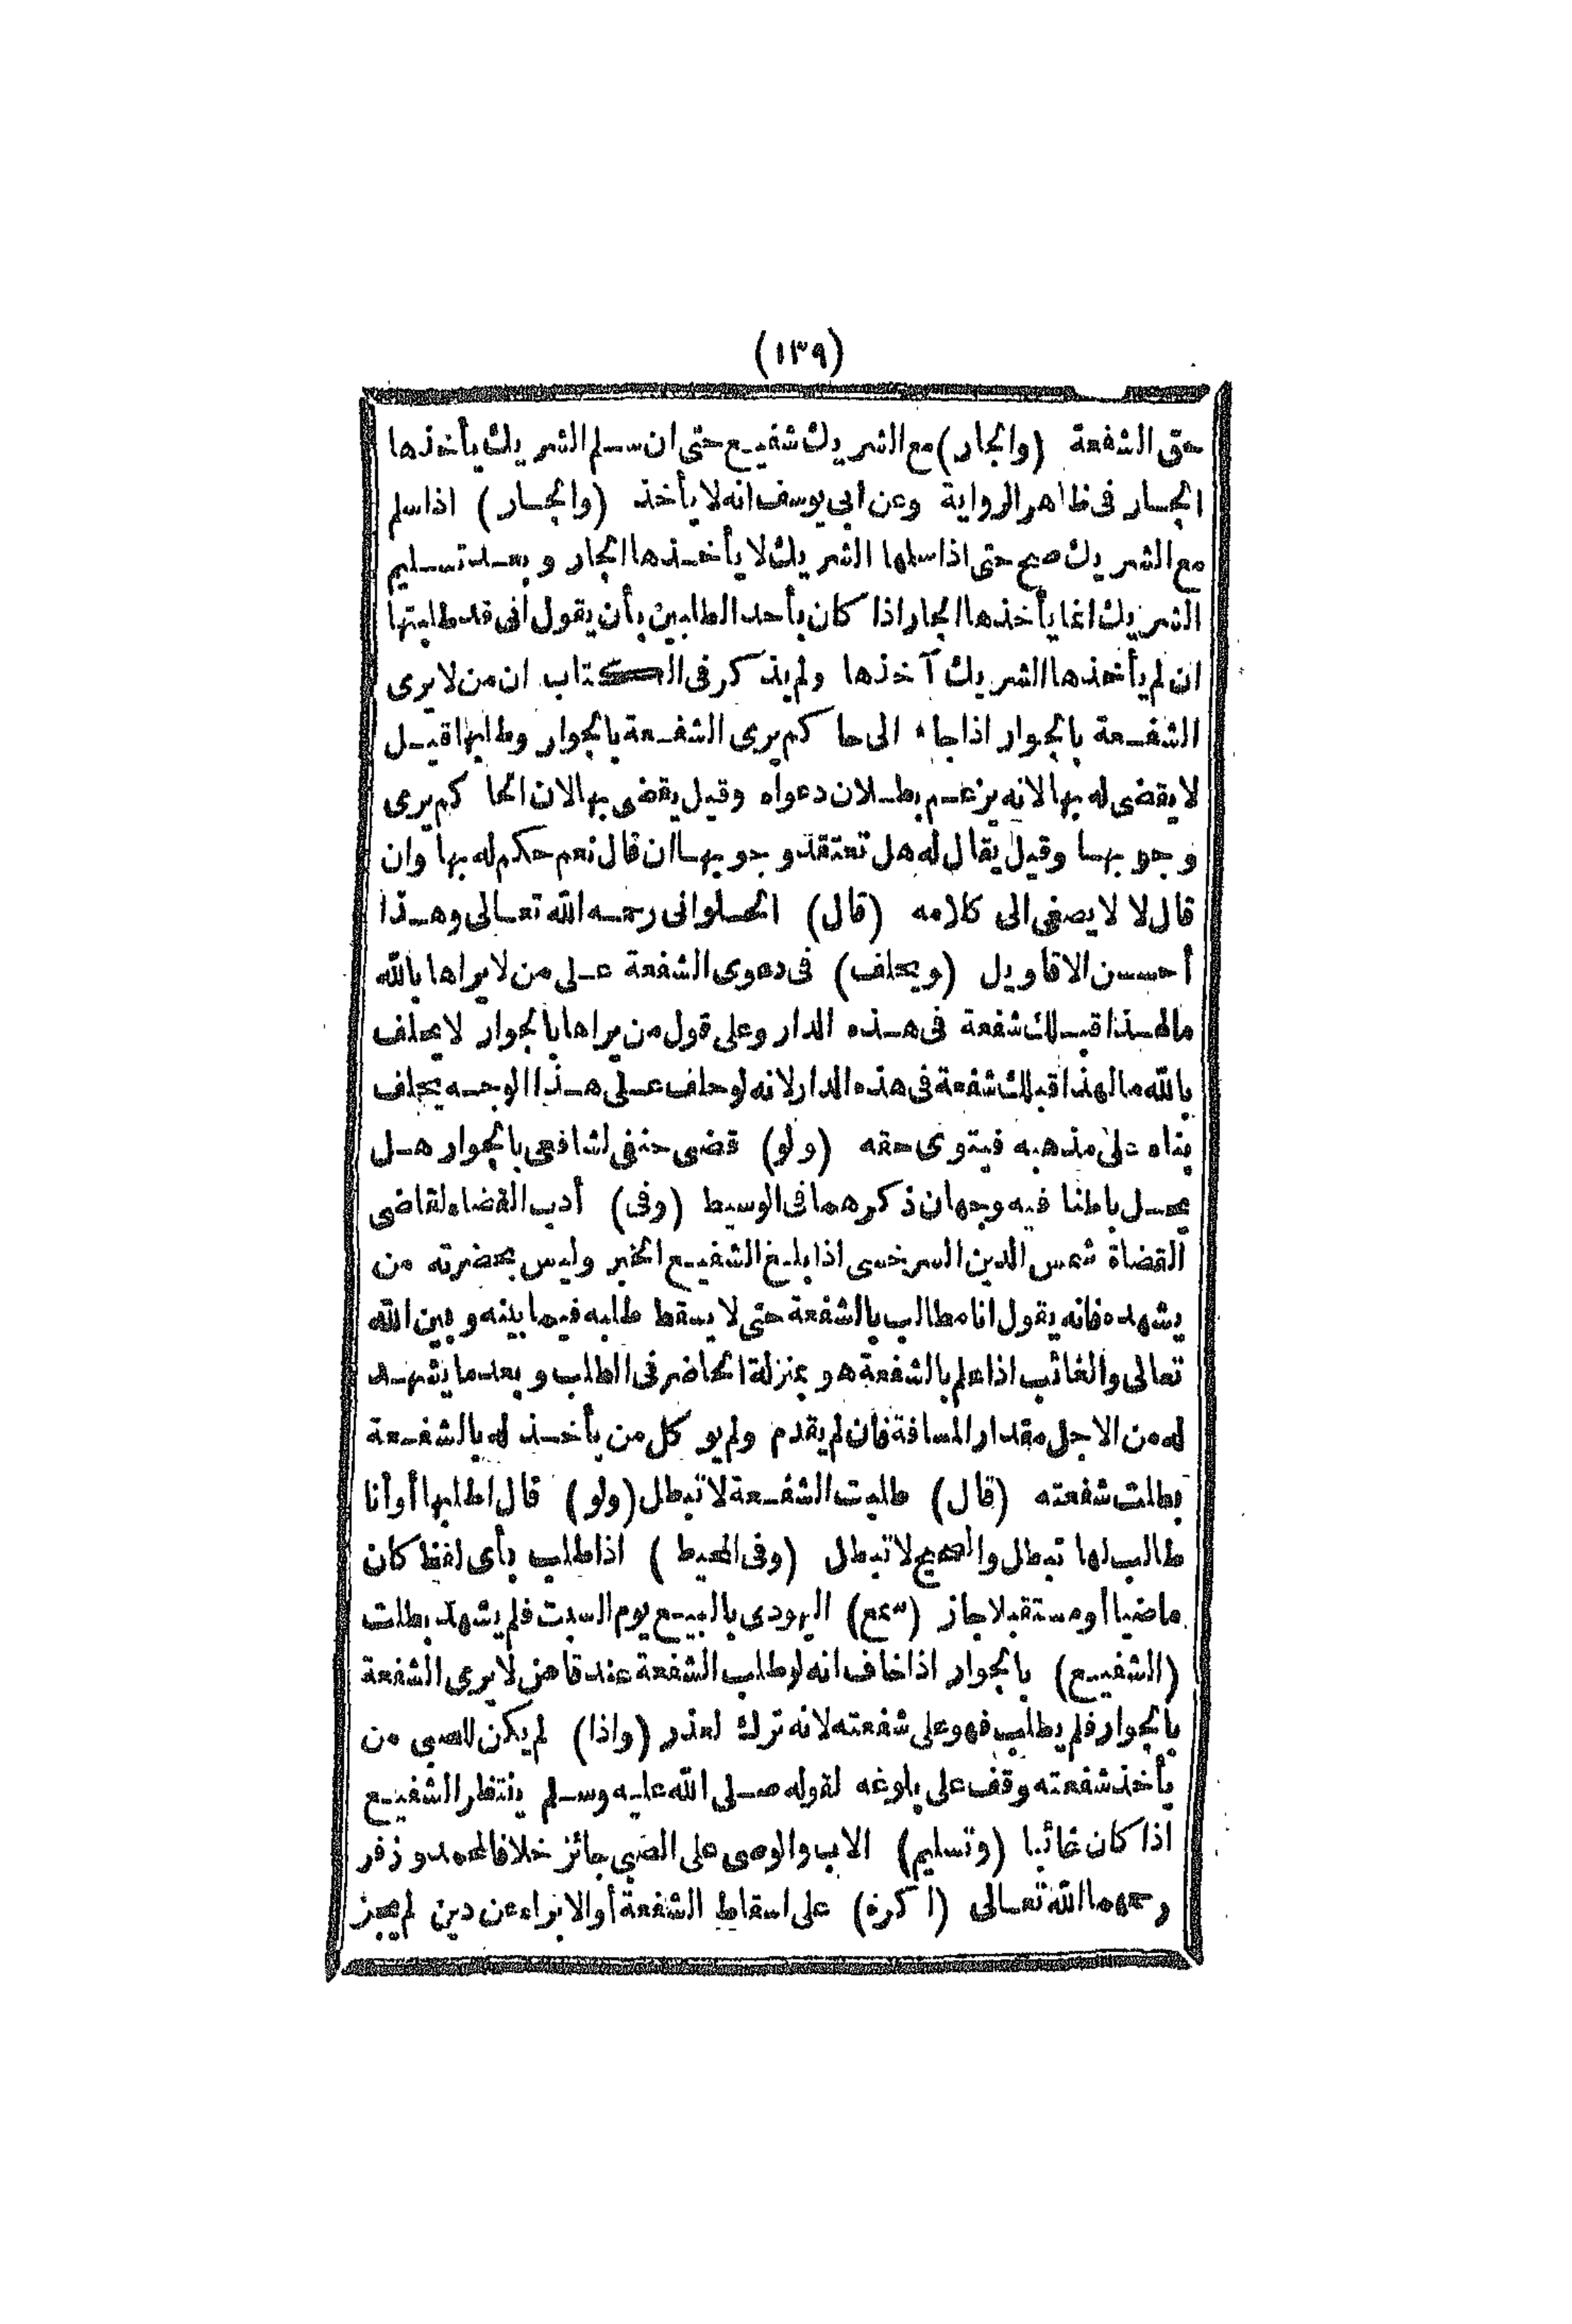 (١٣٩)
حق الشفعة (والجار) مع الشريك شفيع حتى ان سلم الشريك يأخذها
الجار فى ظاهر الرواية وعن ابى يوسف انه لا يأخذ (والجار) اذا سلم
مع الشريك صح حتى اذا سلمها الشريك لا يأخذها الجار وبعد تسليم
الشريك انما يأخذها الجار اذا كان بأحد الطلبين بأن يقول انى قد طلبتها
ان لم يأخذها الشريك آخذها ولم يذكر فى الكتاب ان من لا يرى
الشفعة بالجوار اذا جاء الى حاكم يرى الشفعة بالجوار وطلبها قيل
لا يقضى له بها لانه يزعم بطلان دعواه وقيل يقضى بها لان الحاكم يرى
وجوبها وقيل يقال له هل تعتقد وجوبها ان قال نعم حكم له بها وان
قال لا لا يصغى الى كلامه (قال) الحلوانى رحمه الله تعالى وهذا
أحسن الاقاويل (ويحلف) فى دعوى الشفعة على من لا يراها بالله
ما لهذا قبلك شفعة فى هذه الدار وعلى قول من يراها بالجوار لا يحلف
بالله ما لهذا قبلك شفعة فى هذه الدار لانه لو حلف على هذا الوجه يحلف
بناء على مذهبه فيتوى حقه (ولو) قضى حنفى لشافعى بالجوار هل
يحل باطنا فيه وجهان ذكرهما فى الوسيط (وفى) أدب القضاء لقاضى
القضاة شمس الدين السرخسى اذا بلغ الشفيع الخبر وليس بحضرته من
يشهده فانه يقول انا مطالب بالشفعة حتى لا يسقط طلبه فيما بينه وبين الله
تعالى والغائب اذا علم بالشفعة هو بمنزلة الحاضر فى الطلب وبعد ما يشهد
له من الاجل مقدار المسافة فان لم يقدم ولم يوكل من يأخذ له بالشفعة
بطلت شفعته (قال) طلبت الشفعة لا تبطل (ولو) قال اطلبها أو أنا
طالب لها تبطل والصحيح لا تبطل (وفى المحيط) اذا طلب بأى لفظ كان
ماضيا أو مستقبلا جاز (سمع) اليهودى بالبيع يوم السبت فلم يشهد بطلت
(الشفيع) بالجوار اذا خاف انه لو طلب الشفعة عند قاض لا يرى الشفعة
بالجوار فلم يطلب فهو على شفعته لانه ترك لعذر (واذا) لم يكن للصبى من
يأخذ شفعته وقف على بلوغه لقوله صلى الله عليه وسلم ينتظر الشفيع
اذا كان غائبا (وتسليم) الاب والوصى على الصبى جائز خلافا لمحمد وزفر
رحمهما الله تعالى (اكره) على اسقاط الشفعة أو الابراء عن دين لم يجز